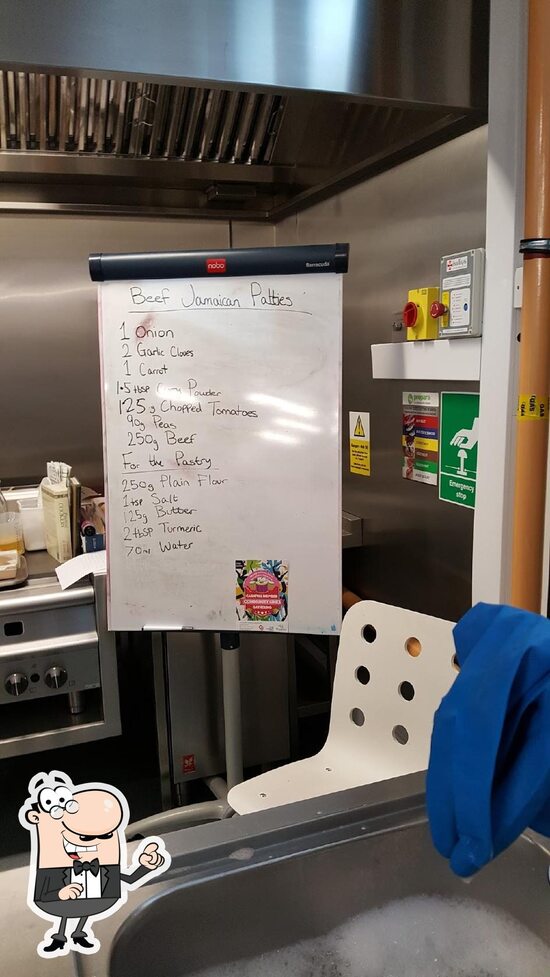 nobo
Barracuda
Beef Jamaican Patties
1 Onion
2 Garlic Cloves
1 Carrot
1.5 tbsp Curry Powder
125g Chopped Tomatoes
90g Peas
250g Beef
For the Pastry
250g Plain Flour
1 tsp Salt
125g Butter
2 tbsp Turmeric
70ml Water
COMMUNITY
prepara
Emergency stop
GAS